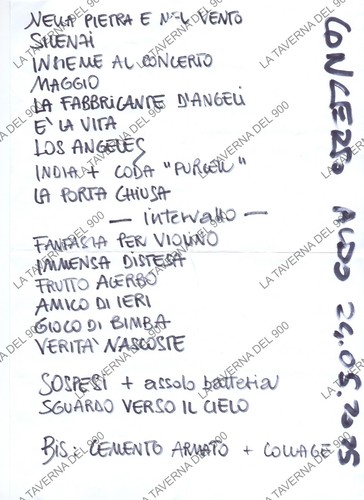 NELLA PIETRA E NEL VENTO
SILENZI
INSIEME AL CONCERTO
MAGGIO
LA FABBRICANTE D'ANGELI
E' LA VITA
LOS ANGELES
INDIA + CODA "PURCELL"
LA PORTA CHIUSA
— intervallo —
FANTASIA PER VIOLINO
IMMENSA DISTESA
FRUTTO ACERBO
AMICO DI IERI
GIOCO DI BIMBA
VERITA' NASCOSTE
SOSPESI + assolo batteria
SGUARDO VERSO IL CIELO
Bis: CEMENTO ARMATO + COLLAGE
CONCERTO ALDO
LA TAVERNA DEL 900